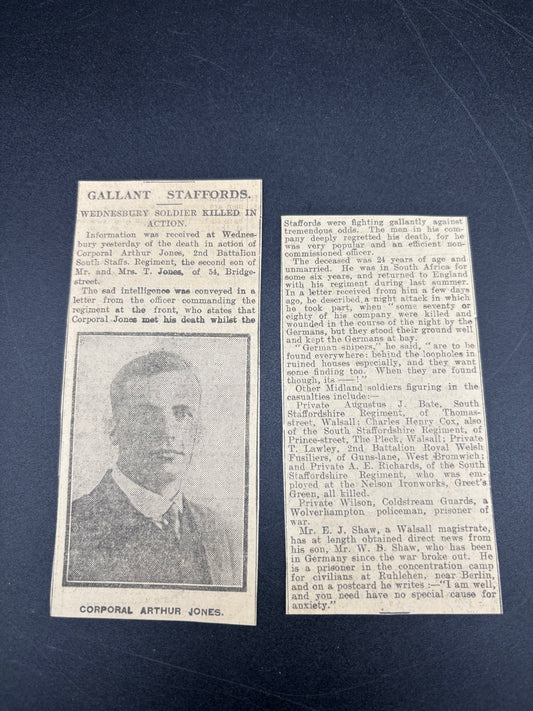 GALLANT STAFFORDS.
WEDNESBURY SOLDIER KILLED IN
ACTION.
Information was received at Wednes-
bury yesterday of the death in action of
Corporal Arthur Jones, 2nd Battalion
South Staffs. Regiment, the second son of
Mr. and Mrs. T. Jones, of 54, Bridge-
street.
The sad intelligence was conveyed in a
letter from the officer commanding the
regiment at the front, who states that
Corporal Jones met his death whilst the
CORPORAL ARTHUR JONES.
Staffords were fighting gallantly against
tremendous odds. The men in his com-
pany deeply regretted his death, for he
was very popular and an efficient non-
commissioned officer.
The deceased was 24 years of age and
unmarried. He was in South Africa for
some six years, and returned to England
with his regiment during last summer.
In a letter received from him a few days
ago, he described a night attack in which
he took part, when "some seventy or
eighty of his company were killed and
wounded in the course of the night by the
Germans, but they stood their ground well
and kept the Germans at bay.
"German snipers," he said, "are to be
found everywhere: behind the loopholes in
ruined houses especially, and they want
some finding too. When they are found
though, its ——!"
Other Midland soldiers figuring in the
casualties include:—
Private Augustus J. Bate, South
Staffordshire Regiment, of Thomas-
street, Walsall; Charles Henry Cox, also
of the South Staffordshire Regiment, of
Prince-street, The Pleck, Walsall; Private
T. Lawley, 2nd Battalion Royal Welsh
Fusiliers, of Guns-lane, West Bromwich;
and Private A. E. Richards, of the South
Staffordshire Regiment, who was em-
ployed at the Nelson Ironworks, Greet's
Green, all killed.
Private Wilson, Coldstream Guards, a
Wolverhampton policeman, prisoner of
war.
Mr. E. J. Shaw, a Walsall magistrate,
has at length obtained direct news from
his son, Mr. W. B. Shaw, who has been
in Germany since the war broke out. He
is a prisoner in the concentration camp
for civilians at Ruhlehen, near Berlin,
and on a postcard he writes:—"I am well,
and you need have no special cause for
anxiety."